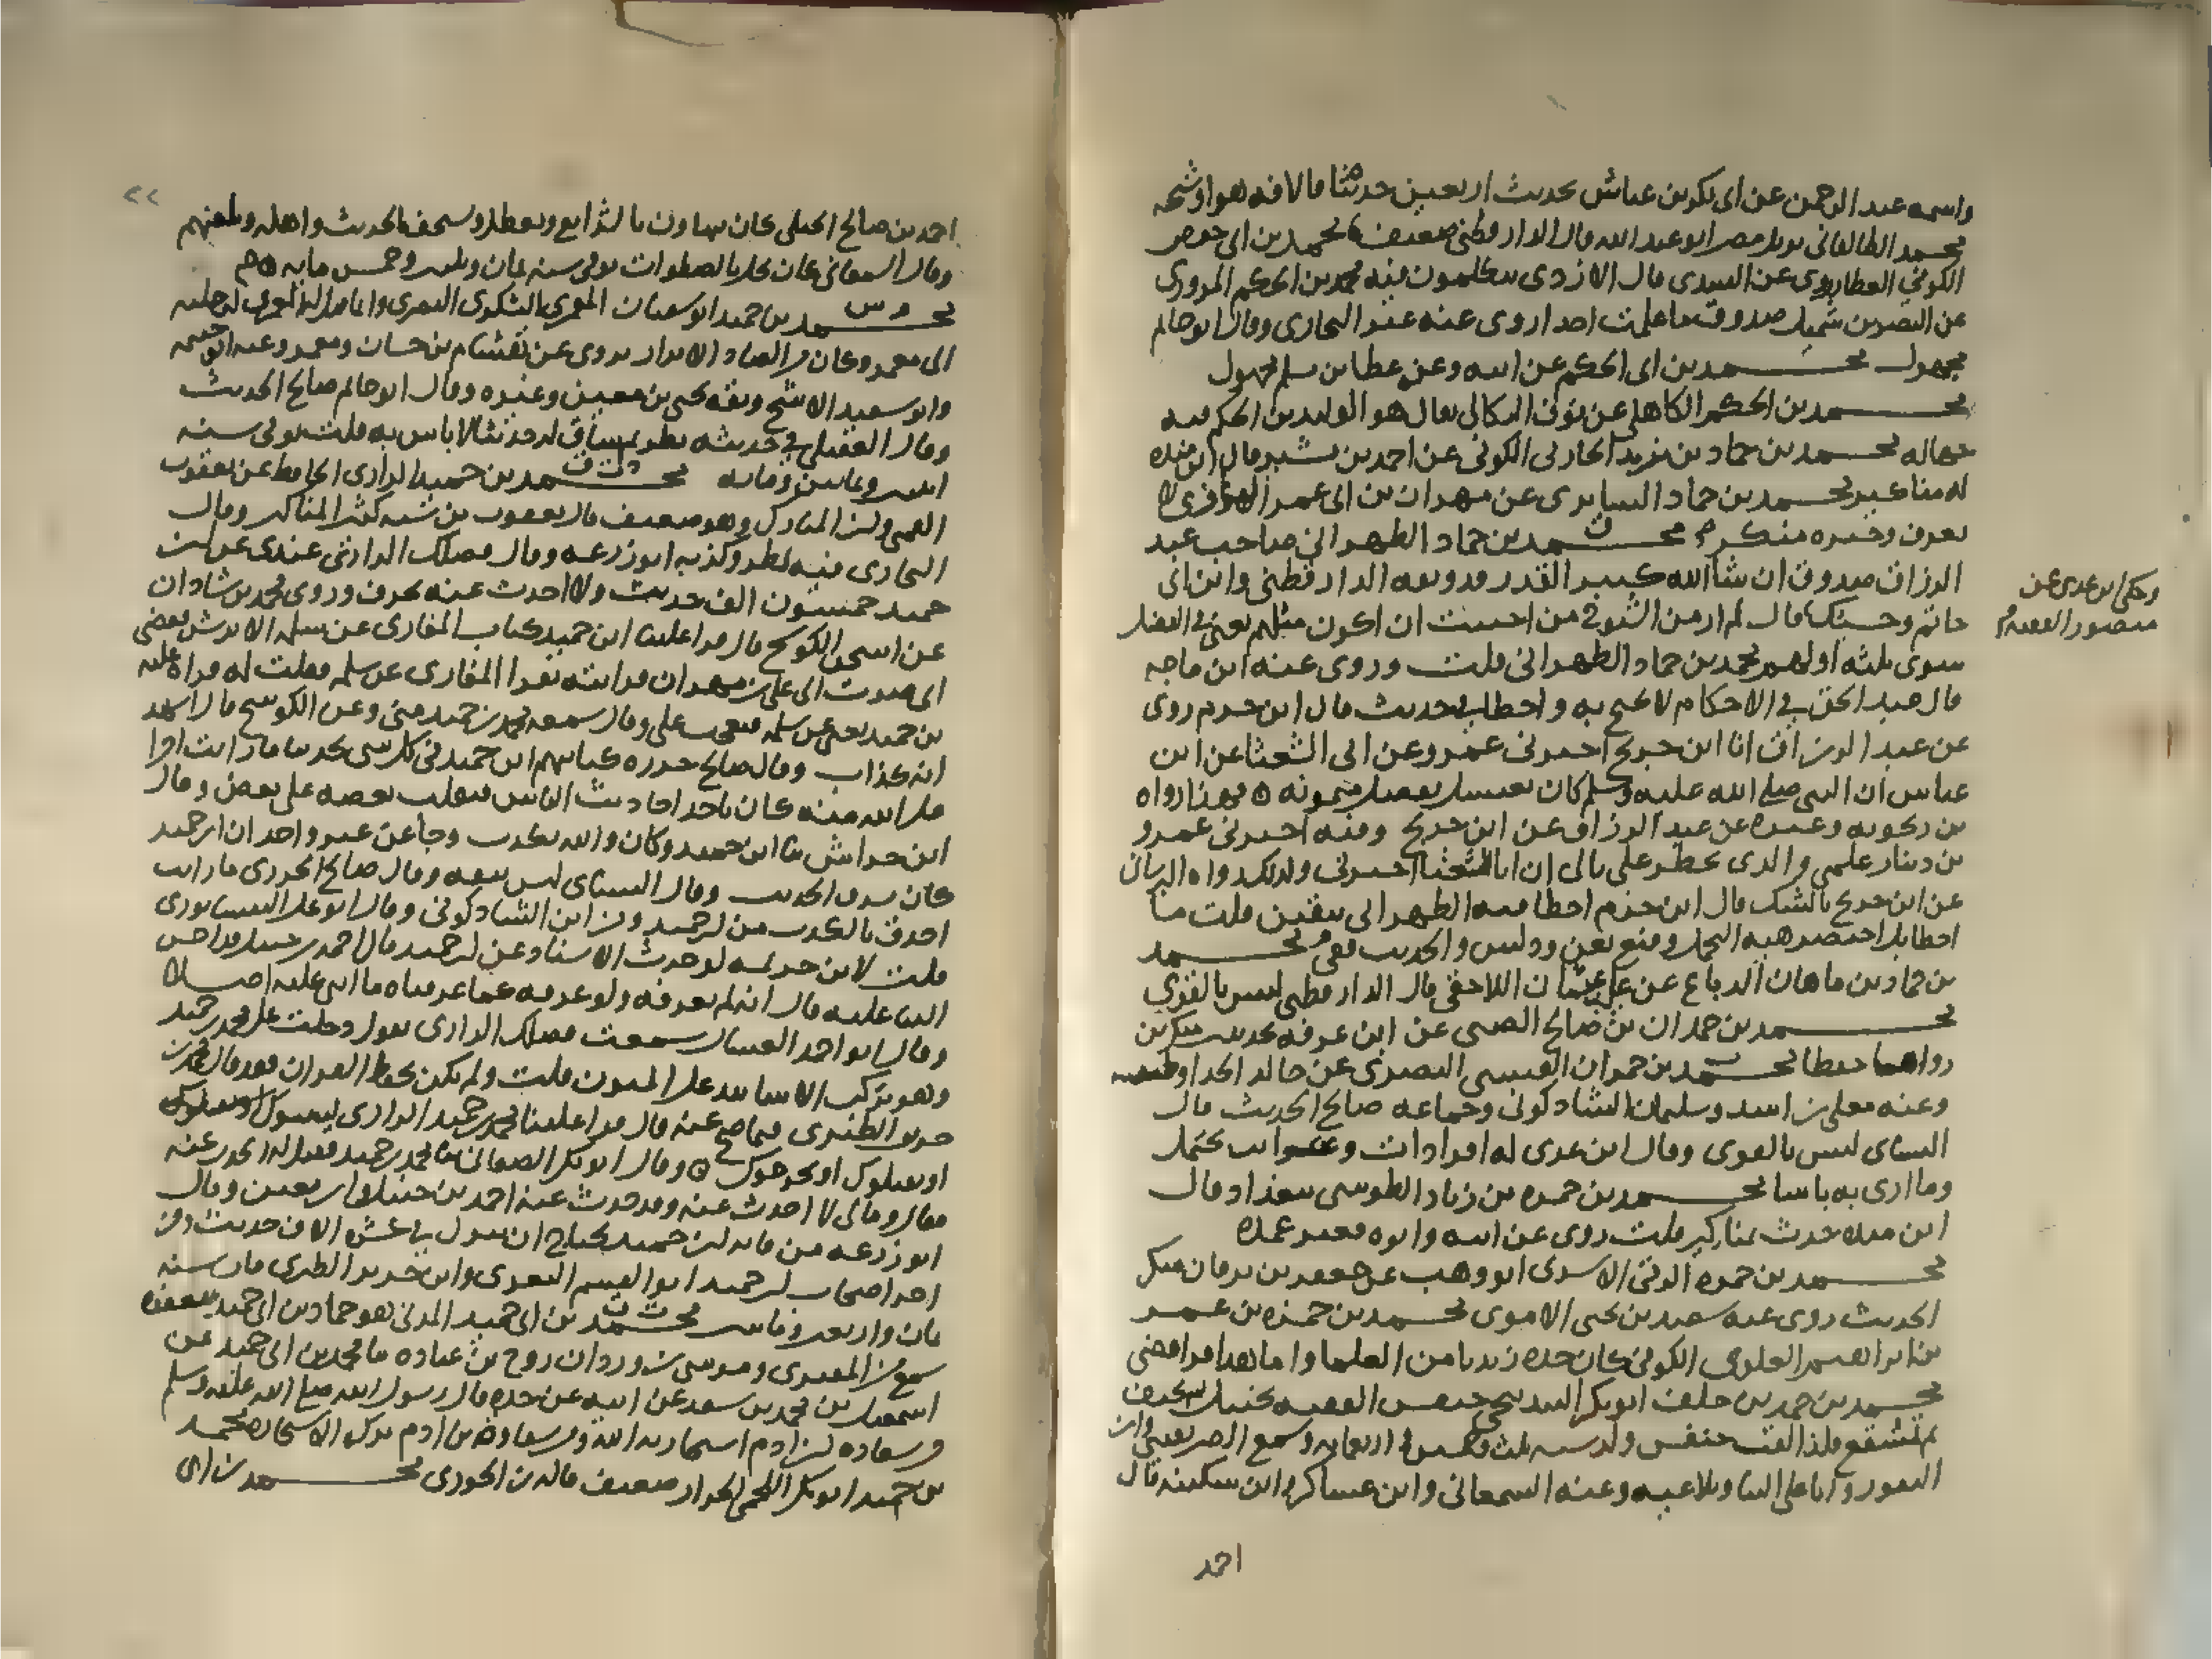 واسمه عبد الرحمن عن ابى بكر بن عياش بحديث اربعين حديثا قالا فيه هو او شيخه
محمد الطالقانى نزيل مصر ابو عبد الله قال الدارقطنى ضعيف محمد بن ابى جعفر
الكوفى العطار روى عن السدى قال الازدى يتكلمون فيه محمد بن الحكم المروزى
عن النضر بن شميل صدوق ما علمت احدا روى عنه غير البخارى وقال ابو حاتم
مجهول محمد بن ابى الحكم عن ابيه وعن عطا بن مسلم مجهول
محمد بن الحكم الكاهلى عن نوف البكالى يقال هو الوليد بن الحكم فيه
جهالة محمد بن حماد بن زيد الحارثى الكوفى عن احمد بن بشير قال ابن منده
له مناكير محمد بن حماد السابرى عن مهران بن ابى عمر لا
يعرف وخبره منكر محمد بن حماد الطهرانى صاحب عبد
الرزاق صدوق ان شا الله كبير القدر قد وثقه الدارقطنى وابن ابى
حاتم وحسبك قال لم ار من الشيوخ من احببت ان اكون مثلهم يعنى فى الفضل
سوى ثلثة اولهم محمد بن حماد الطهرانى قلت وروى عنه ابن ماجه
قال عبد الحق فى الاحكام لا يحتج به واخطا فى حديث قال ابن حزم روى
عن عبد الرزاق انا ابن جريج اخبرنى عمرو عن ابى الشعثا عن ابن
عباس ان النبى صلى الله عليه وسلم كان يغتسل بفضل ميمونة فهذا رواه
بن زنجويه وغيره عن عبد الرزاق عن ابن جريج وفيه اخبرنى عمرو
بن دينار علمى والذى يخطر على بالى ان ابا الشعثا اخبرنى ولذلك رواه البرسانى
عن ابن جريج بالشك قال ابن حزم اخطا فيه الطهرانى بيقين قلت ما
اخطا بل اختصر هذا التحمل وقنع بعن ودلس والحديث ففى محمد
بن حماد بن ماهان الدباغ عن على بن عثمان اللاحقى قال الدارقطنى ليس بالقوى
محمد بن حمدان بن صالح الضبى عن ابن عرفه بحديث منكر بن
رواهما خطا محمد بن حمران القيسى البصرى عن خالد الحذا وطبقته
وعنه معلى بن اسد وسليمان الشاذكونى وجماعه صالح الحديث قال
النساى ليس بالقوى وقال ابن عدى له افرادات وغرايب يحتمل
وما ارى به باسا محمد بن حمزه بن زياد الطوسى ببغداد قال
ابن منده حدث بمناكير قلت روى عن ابيه وابوه فغير عمده
محمد بن حمزه الرقى الاسدى ابو وهب عن جعفر بن برقان منكر
الحديث روى عنه سعيد بن يحيى الاموى محمد بن حمزه بن عمر
بن ابراهيم العلوى الكوفى كان جده زيديا من العلما واما هذا فرافضى
محمد بن حمد بن خلف ابو بكر البندنيجى حنفش الفقيه تحنبل ثم تحنف
ثم تشفع فلذا لقب حنفش ولد سنة ثلث وخمسين اربعمايه وسمع الصريفينى وابن
النقور وابا على البنا وتلا عليه وعنه السمعانى وابن عساكر وابن سكينه قال
احمد
وحكى ابن عدى عن
منصور الفقيه
احمد بن صالح الجيلى كان يتهاون بالشرايع ويعطل ويستخف بالحديث واهله ويلعنهم
وقال السمعانى كان يخل بالصلوات توفى سنه ثمان وثلثين وخمس مايه
محمد بن حميد ابو سفيان المعمرى اليشكرى البصرى وانما قيل له المعمرى لرحلته
الى معمر وكان من العباد الابدال يروى عن هشام بن حسان ومعمر وعنه ابو خيثمه
وابو سعيد الاشج وثقه يحيى بن معين وغيره وقال ابو حاتم صالح الحديث
وقال العقيلى فى حديثه نظر ثم ساق له حديثا لا باس به قلت توفى سنه
اثنين وثمانين ومايه محمد بن حميد الرازى الحافظ عن يعقوب
القمى وابن المبارك وهو ضعيف قال يعقوب بن شيبه كثير المناكير وقال
البخارى فيه نظر وكذبه ابو زرعه وقال فضلك الرازى عندى عن ابن
حميد خمسون الف حديث ولا احدث عنه بحرف وروى محمد بن شاذان
عن اسحق الكوسج قال قرا علينا ابن حميد كتاب المغازى عن سلمه الابرش فقضى
الى صرت الى على بن مهران فرايته يقرا المغازى عن سلمه فقلت له قراه عليه
بن حميد يعنى عن سلمه فتعجب على وقال سمعه محمد بن حميد منى وعن الكوسج قال اشهد
انه كذاب وقال صالح جزره كنا نتهم ابن حميد فى كل شى يحدثنا ما رايت اجرا
على الله منه كان ياخذ احاديث الناس فيقلب بعضه على بعض وقال
ابن خراش ثنا ابن حميد وكان والله يكذب وجا عن غير واحد ان ابن حميد
كان يسرق الحديث وقال النساى ليس بثقه وقال صالح الجزرى ما رايت
احذق بالكذب من ابن حميد ومن ابن الشاذكونى وقال ابو على النيسابورى
قلت لابن خزيمه لو حدث الاستاذ عن ابن حميد فان احمد بن حنبل قد احسن
الثنا عليه قال انه لم يعرفه ولو عرفه كما عرفناه ما اثنى عليه اصلا
وقال ابو احمد العسال سمعت فضلك الرازى يقول دخلت على محمد بن حميد
وهو يركب الاسانيد على المتون قلت ولم يكن يحفظ القران فقد قال محمد بن
جرير الطبرى فيما صح عنه قال قرا علينا محمد بن حميد الرازى ليثبتوك او يقتلوك
او يخرجوك وقال ابو بكر الصغانى ثنا محمد بن حميد فقيل له اتحدث عنه
فقال وما لى لا احدث عنه وقد حدث عنه احمد بن حنبل وابن معين وقال
ابو زرعه من فاته ابن حميد يحتاج ان ينزل فى عشره الاف حديث ومن
اخر اصحاب ابن حميد ابو القسم البغوى وابن جرير الطبرى مات سنه
ثمان واربعين ومايتين محمد بن ابى حميد المدنى هو حماد بن ابى حميد ضعفوه
سمع من المقبرى وموسى بن وردان روح بن عباده ثنا محمد بن ابى حميد عن
اسمعيل بن محمد بن سعد عن ابيه عن جده قال رسول الله صلى الله عليه وسلم
من سعاده ابن ادم استخارته الله ومن شقاوه بن ادم تركه الاستخاره محمد
بن حميد ابو بكر اللخمى الخزاز ضعيف قاله ابن الجوزى محمد بن ابى